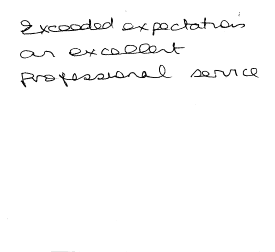 Exceeded expectations
an excellent
professional service